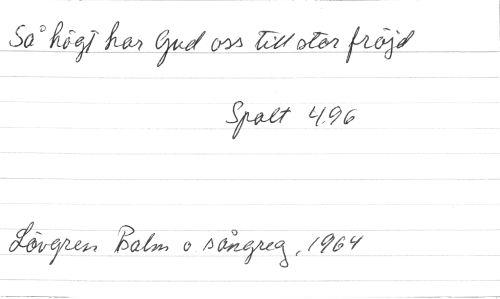 Så högt har Gud oss till stor fröjd
Spalt 496
Lövgren Psalm o sångreg, 1964